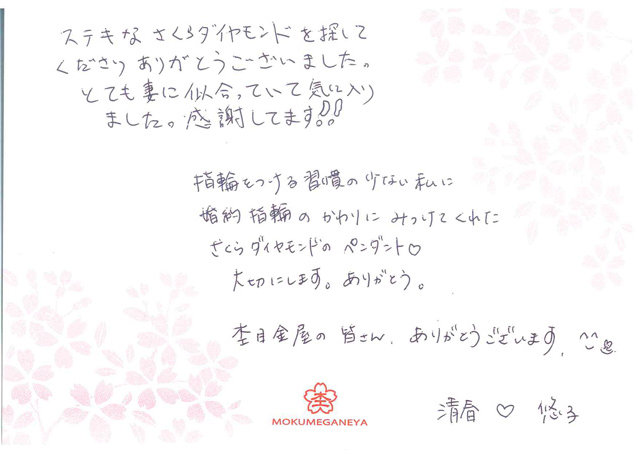 ステキな さくらダイヤモンドを探して
くださり ありがとうございました。
とても妻に似合っていて気に入り
ました。感謝してます!!
指輪をつける習慣の少ない私に
婚約指輪の かわりに みつけてくれた
さくらダイヤモンドの ペンダント♡
大切にします。ありがとう。
杢目金屋の皆さん、ありがとうございます。^^
杢
MOKUMEGANEYA
清春 ♡ 悠子